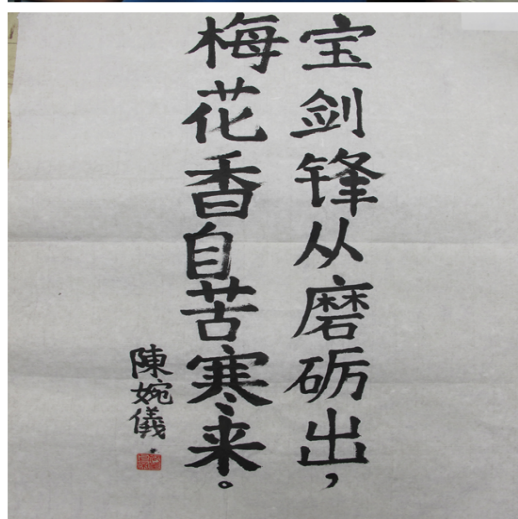 宝剑锋从磨砺出，
梅花香自苦寒来。
陳婉儀